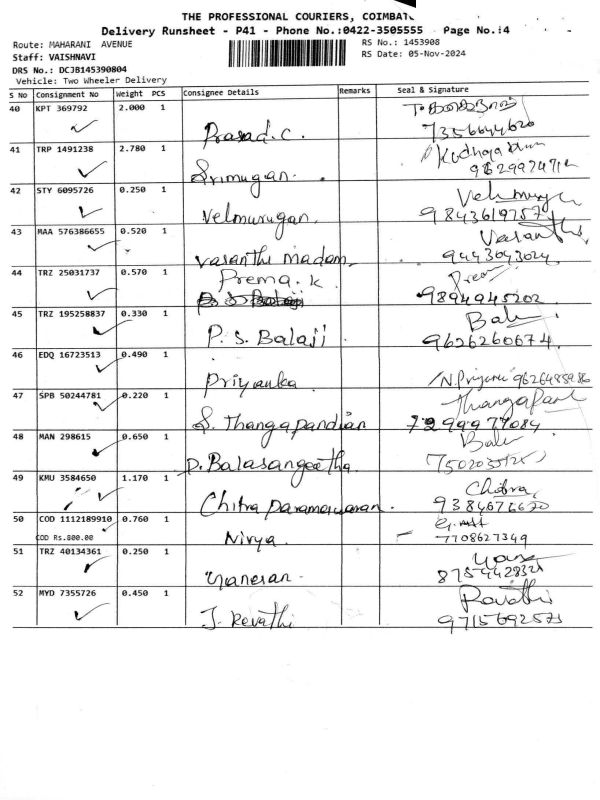 THE PROFESSIONAL COURIERS, COIMBAT
Delivery Runsheet - P41 - Phone No.:0422-3505555 Page No.:4
Route: MAHARANI AVENUE
RS No.: 1453908
Staff: VAISHNAVI
RS Date: 05-Nov-2024
DRS No.: DCJB145390804
Vehicle: Two Wheeler Delivery
S No Consignment No Weight PCS Consignee Details Remarks Seal & Signature
40 KPT 369792 2.000 1
Prasad.C. 7356644620
41 TRP 1491238 2.780 1
Srimugan.
42 STY 6095726 0.250 1
Velmurugan. 9843619757
43 MAA 576386655 0.520 1 Vasantha
Vasanthi madam 9443043024
44 TRZ 25031737 0.570 1 Prema.K
9894945202
45 TRZ 195258837 0.330 1
P. S. Balaji 9626260674
46 EDQ 16723513 0.490 1
Priyanka
47 SPB 50244781 0.220 1
S. Thangapandian 7299977084
48 MAN 298615 0.650 1
D. Balasangeetha
49 KMU 3584650 1.170 1 Chitra
Chitra Parameswaran.
50 COD 1112189910 0.760 1
COD Rs.800.00 Nivya 7708627349
51 TRZ 40134361 0.250 1
52 MYD 7355726 0.450 1 Revathi
J. Revathi 9715692573